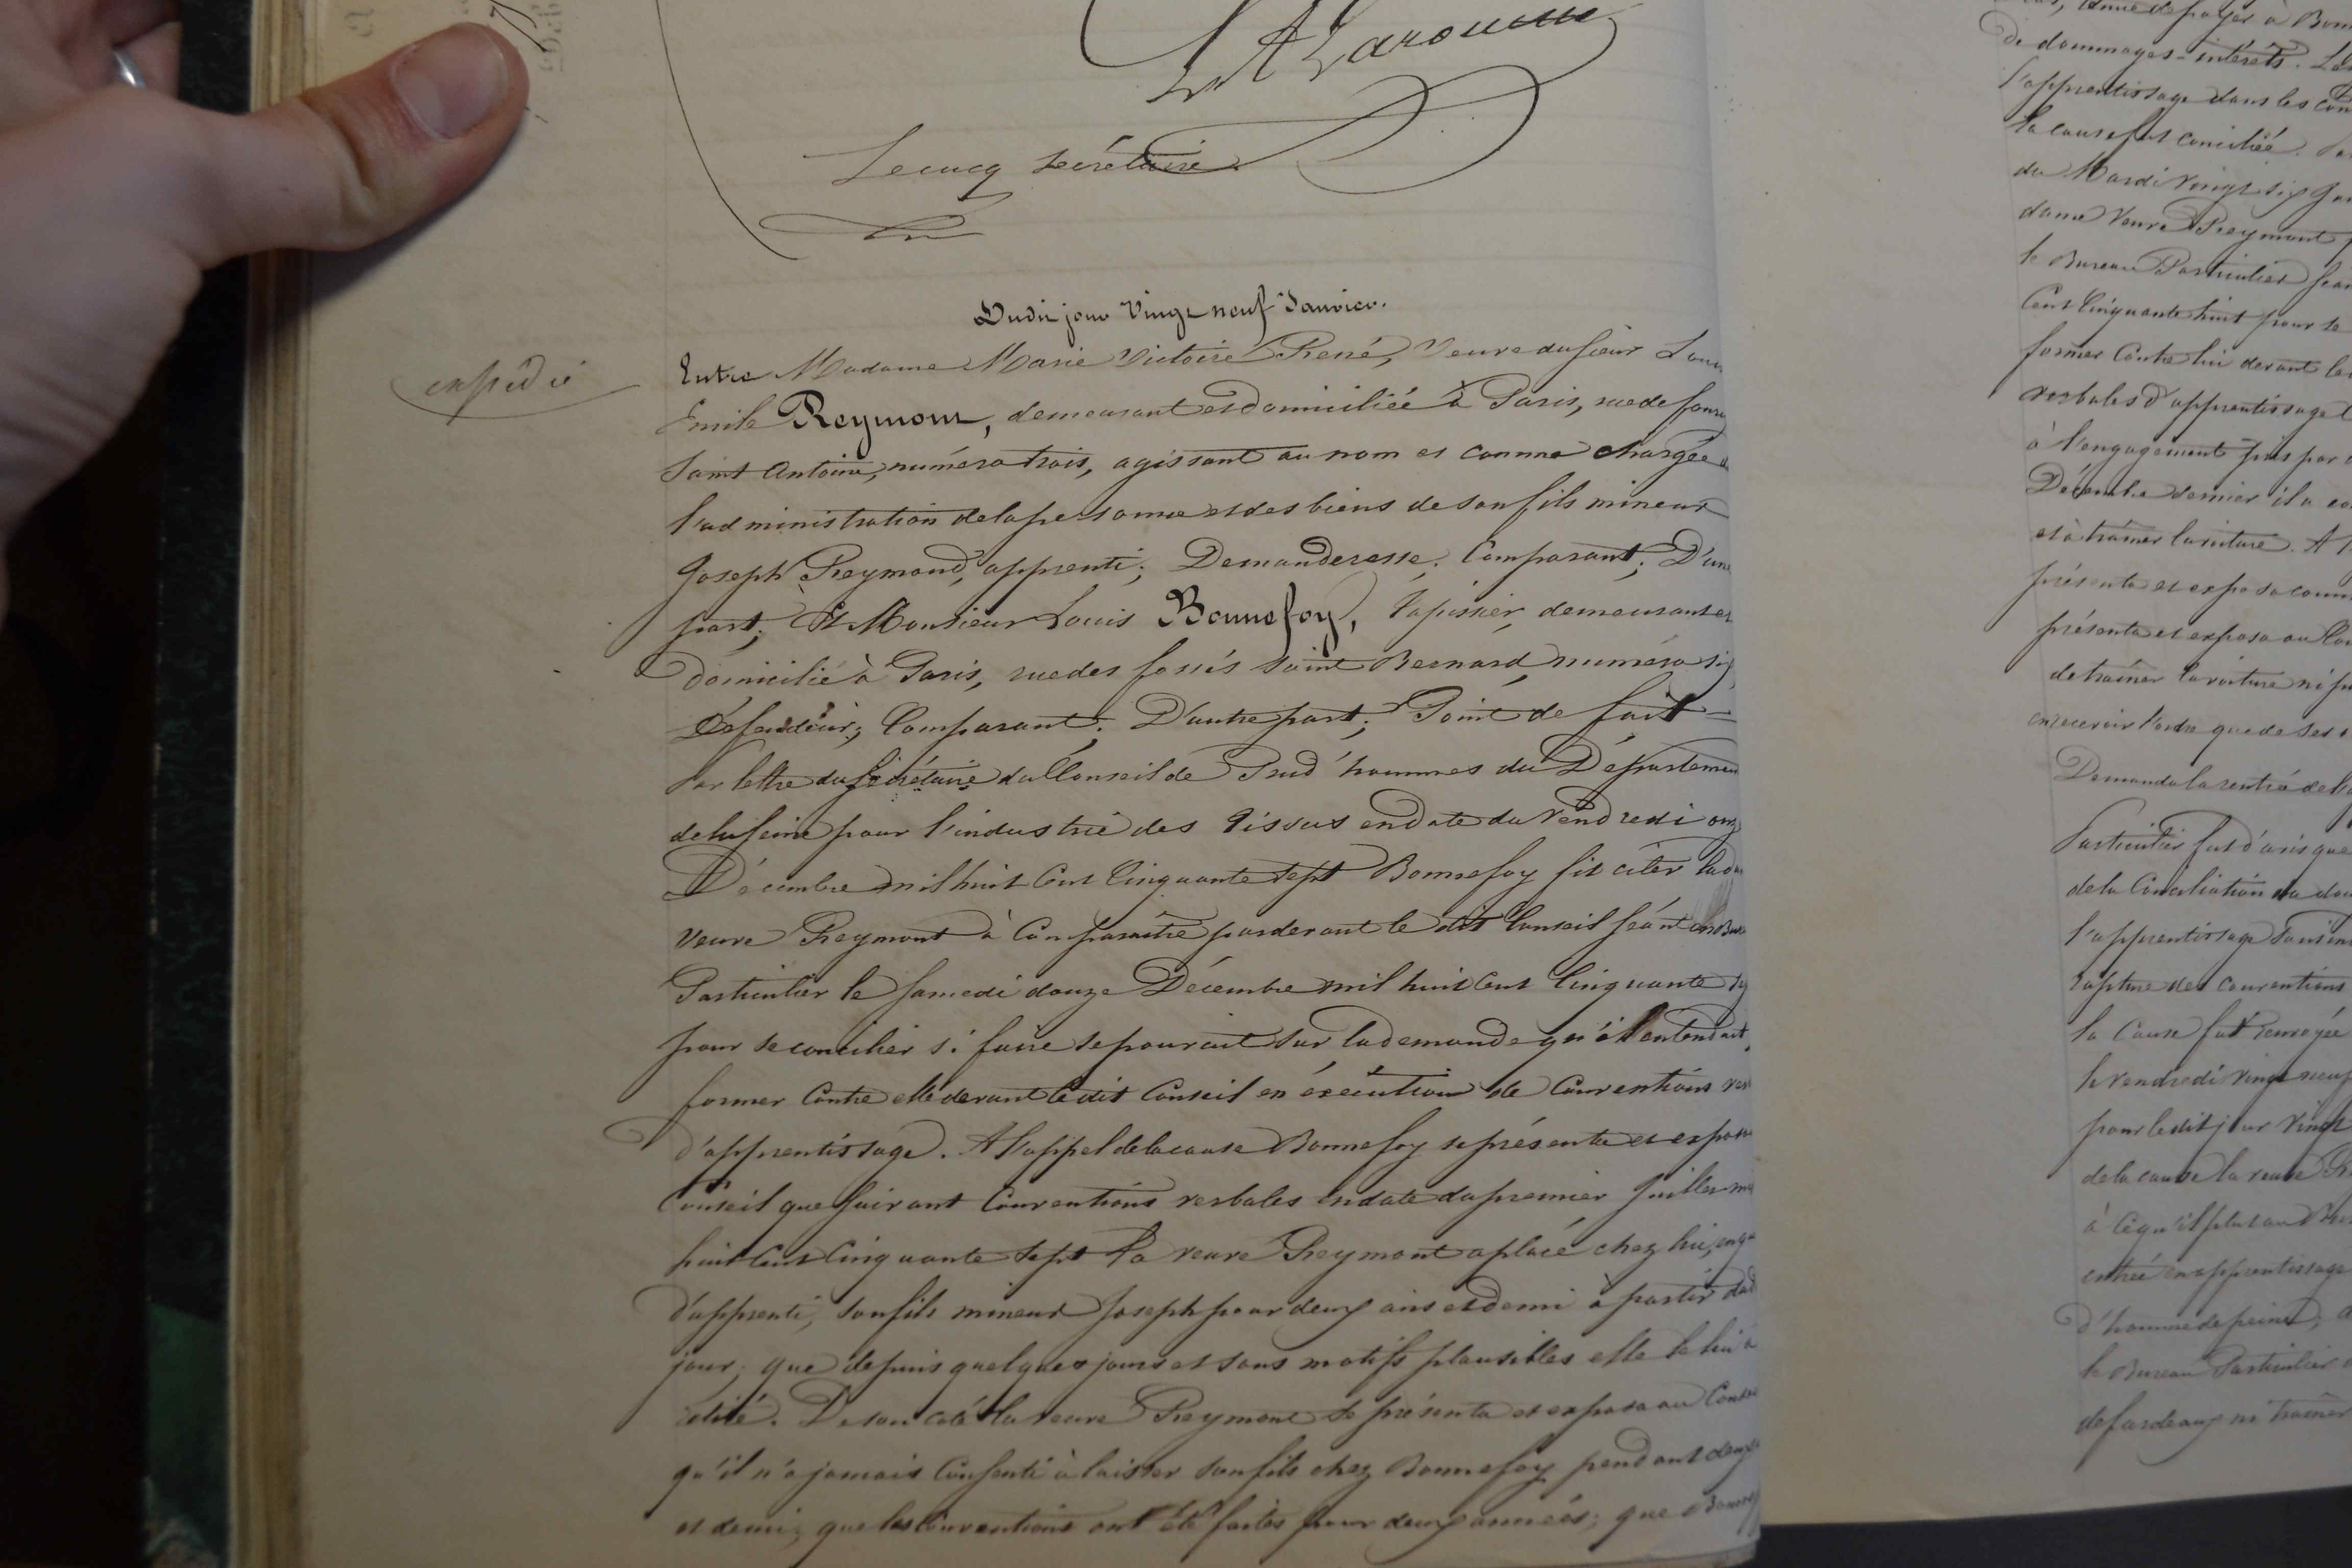 Lecucq secrétaire
Dudit jour Vingt neuf Janvier.
expédié
Entre Madame Marie Victoire René, Veuve du sieur
Emile Reymont, demeurant et domiciliée à Paris, rue de
Saint Antoine, numéro trois, agissant au nom et comme chargée
l'administration de la personne et des biens de son fils mineur
Joseph Reymond, apprenti; Demanderesse; Comparant; D'une
part; Et Monsieur Louis Bonnefoy, tapissier, demeurant et
domicilié à Paris, rue des fossés Saint Bernard, numéro six
Défendeur; Comparant; D'autre part; Point de fait =
Par lettre du secrétaire du Conseil de Prud'hommes du Département
de la Seine pour l'industrie des tissus en date du Vendredi onze
Décembre mil huit Cent Cinquante sept Bonnefoy fit citer
veuve Reymont à Comparaître pardevant le dit Conseil séant
Particulier le samedi douze Décembre mil huit Cent Cinquante
pour se concilier si faire se pourait sur la demande qu'il entendait
former Contre elle devant le dit Conseil en éxécution de Conventions
d'apprentissage. A l'appel de la cause Bonnefoy se présenta et exposa
Conseil que suivant Conventions verbales en date du premier Juillet mil
huit Cent Cinquante sept la veuve Reymont a placé chez lui, en
d'apprenti, son fils mineur Joseph pour deux ans et demi à partir du
jour; que depuis quelques jours et sans motifs plausibles elle le lui a
retiré. De son côté la veuve Reymont se présenta et exposa au Conseil
qu'il n'a jamais Consenti à laisser son fils chez Bonnefoy pendant deux
et demi; que les Conventions ont été faites pour deux années; que
de dommages-intérêts.
l'apprentissage dans les
la cause fut conciliée.
du Mardi vingt six
dame Veuve Reymont
le Bureau Particulier
Cent Cinquante huit pour se
former Contre lui devant le
verbales d'apprentissage
à l'engagement pris par
Décembre dernier il a
et à traîner la voiture. A
présenta et exposa comme
présenta et exposa au
de traîner la voiture ni
en recevoir l'ordre que de ses
Demanda la rentrée de
Particulier fut d'avis que
de la Conciliation
l'apprentissage
rupture des conventions
la Cause fut renvoyée
le vendredi vingt neuf
pour le dit jour Vingt
de la cause la veuve
à ce qu'il plut au
entrée en apprentissage
d'homme de peine,
le Bureau Particulier
de fardeaux ni traîner